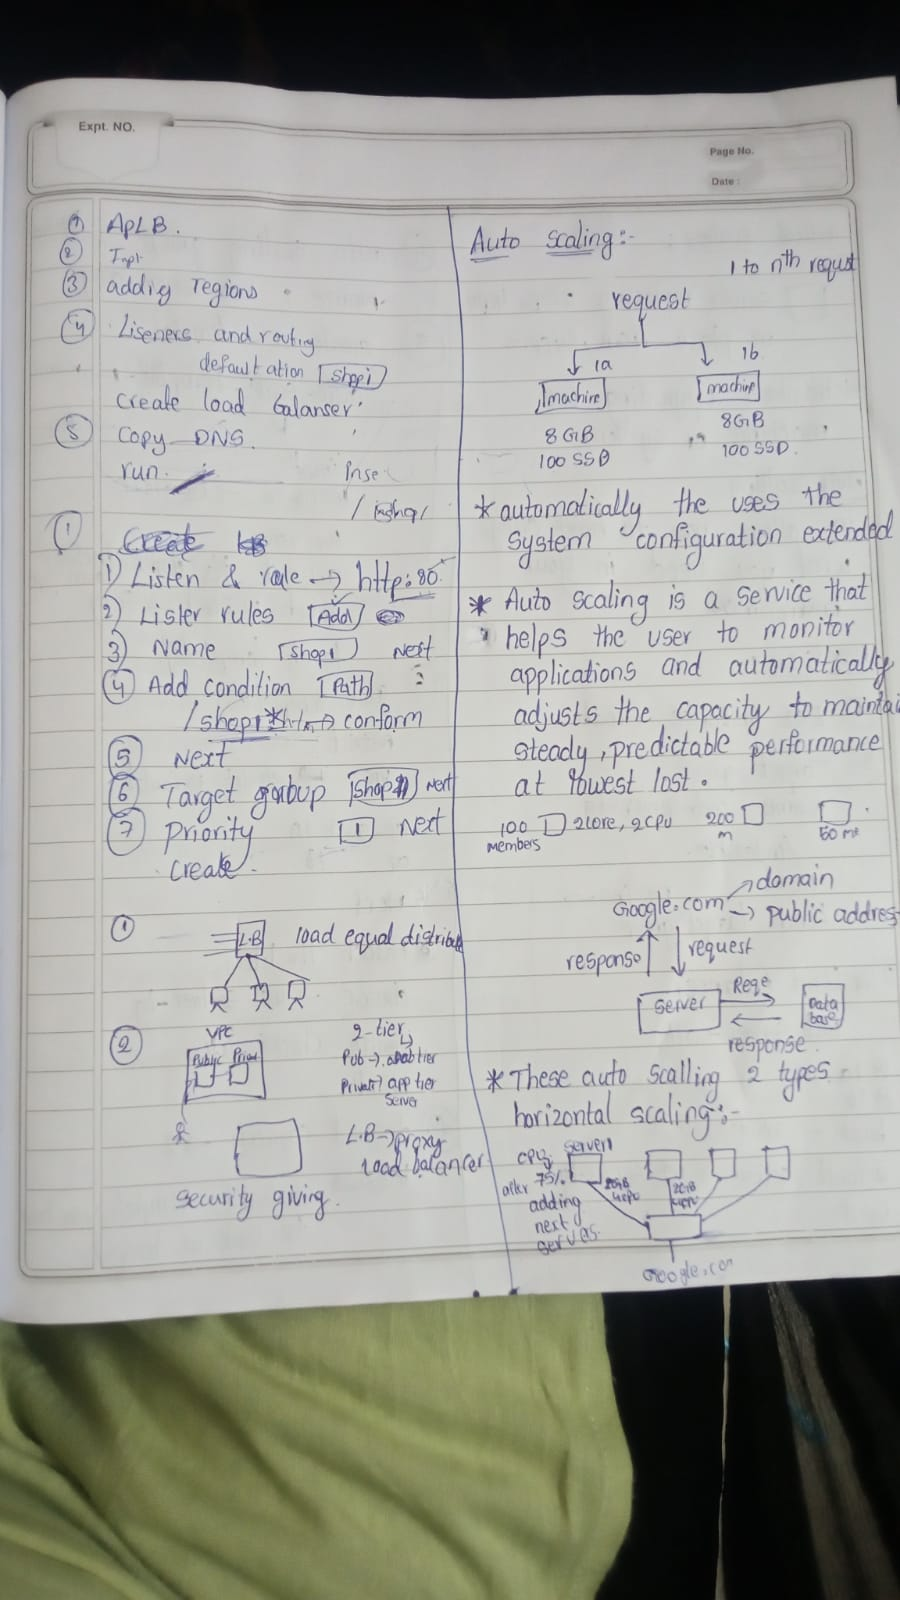 Expt. NO.
Page No.
Date :
① APLB.
②
③ addig regions
④ Liseners and routing
default ation shop1
create load balanser
⑤ copy DNS.
run.
Inse
①
1) Listen & rule → http:80
2) Lister rules Add
3) Name shop1 Next
④ Add condition Path
/shop1* → conform
⑤ Next
⑥ Target shop1 Next
⑦ priority 1 Next
create.
① L.B load equal distribu
② VPC 2-tier
Public Priva
Pub →
Private → app tier
Server
L.B → proxy
load balancer
security giving.
Auto scaling:-
1 to nth requst
request
1a 1b
machine machine
8GB 8GB
100 SSD 100 SSD.
* automatically the uses the
system configuration extended
* Auto scaling is a service that
helps the user to monitor
applications and automatically
adjusts the capacity to maintai
steady, predictable performance
at lowest lost.
100 2core, 2cpu 200 50 me
members m
domain
Google.com → public addres
response request
server Reqe Data
base
response.
* These auto scalling 2 types
horizontal scaling:-
CPU server1
75%
2GB 2GB
4cpu 4cpu
adding
next
serves.
Google.com